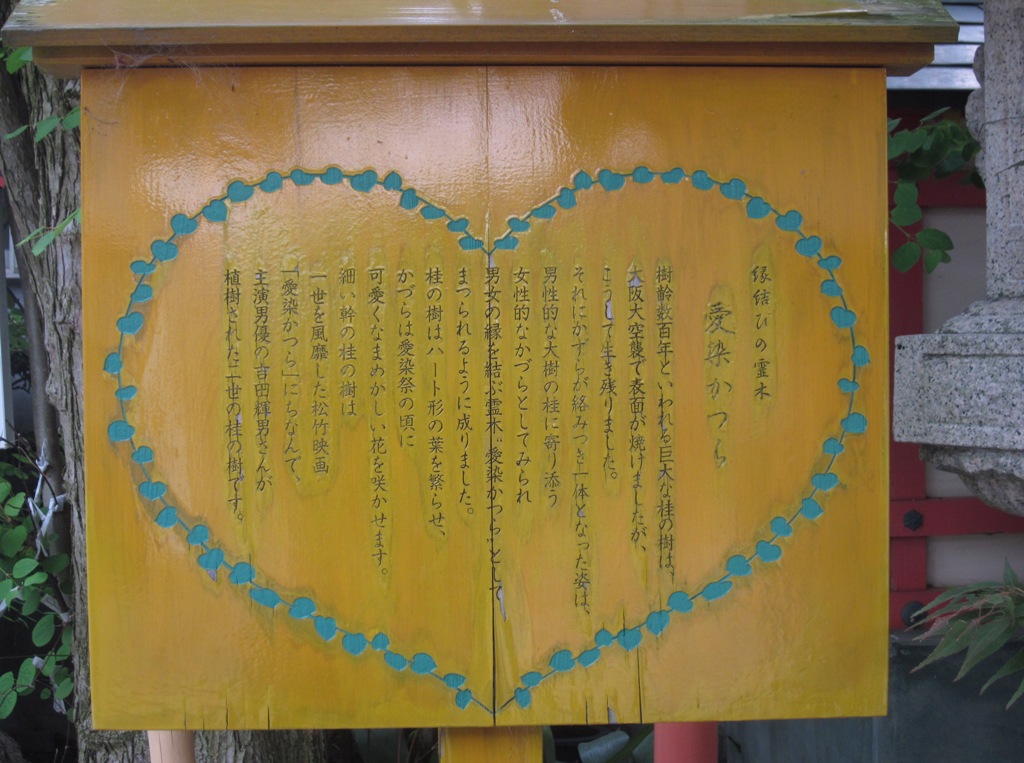 縁結びの霊木
愛染かつら
樹齢数百年といわれる巨大な桂の樹は、
大阪大空襲で表面が焼けましたが、
こうして生き残りました。
それにかずらが絡みつき一体となった姿は、
男性的な大樹の桂に寄り添う
女性的なかづらとしてみられ
男女の縁を結ぶ霊木“愛染かつら”として
まつられるように成りました。
桂の樹はハート形の葉を繁らせ、
かづらは愛染祭の頃に
可愛くなまめかしい花を咲かせます。
細い幹の桂の樹は
一世を風靡した松竹映画
「愛染かつら」にちなんで、
主演男優の吉田輝男さんが
植樹された二世の桂の樹です。